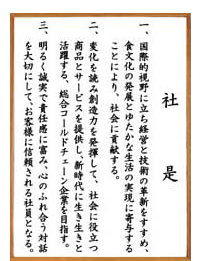 社是
一、国際的視野に立ち経営と技術の革新をすすめ、
食文化の発展とゆたかな生活の実現に寄与する
ことにより、社会に貢献する。
二、変化を読み創造力を発揮して、社会に役立つ
商品とサービスを提供し、新時代に生き生きと
活躍する、総合コールドチェーン企業を目指す。
三、明るく誠実で責任感に富み、心のふれ合う対話
を大切にして、お客様に信頼される社員となる。